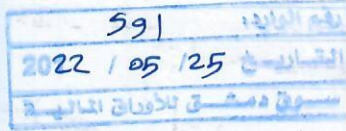 رقم الوارد: 591
التاريخ 25 / 05 / 2022
سوق دمشق للأوراق المالية